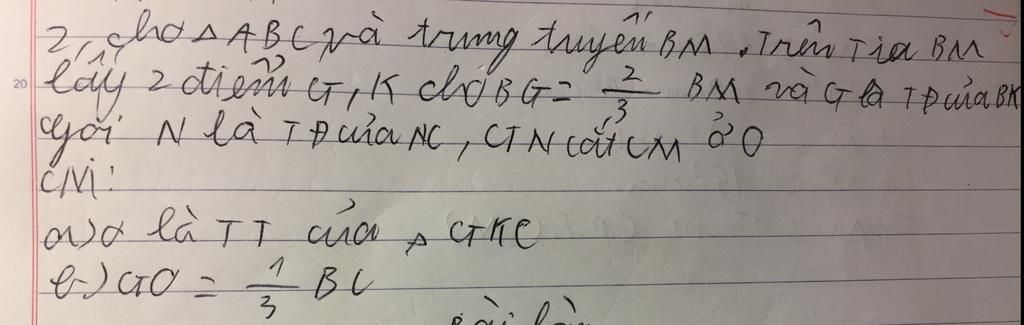 2, cho △ ABC và trung tuyến BM. Trên Tia BM
lấy 2 điểm G, K cho BG = 2/3 BM và G là TĐ của BK
gọi N là TĐ của NC, GN cắt CM ở O
CM:
a) O là TT của △ GKC
b) GO = 1/3 BC
Bài làm